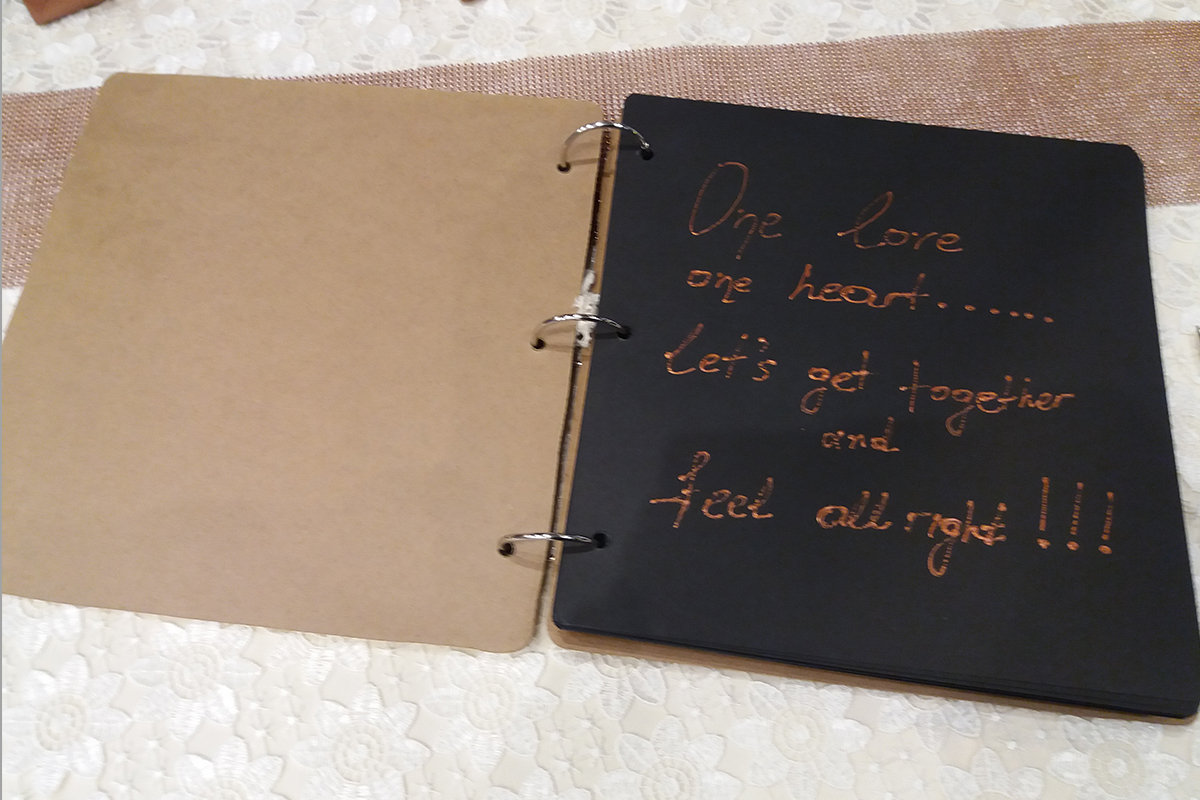 One love
one heart......
Let's get together
and
feel all right!!!